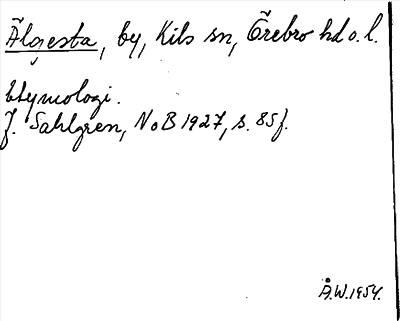 Älgesta, by, Kils sn, Örebro hd o. l.
Etymologi.
J. Sahlgren, NoB 1927, s. 85f.
Å.W. 1954.